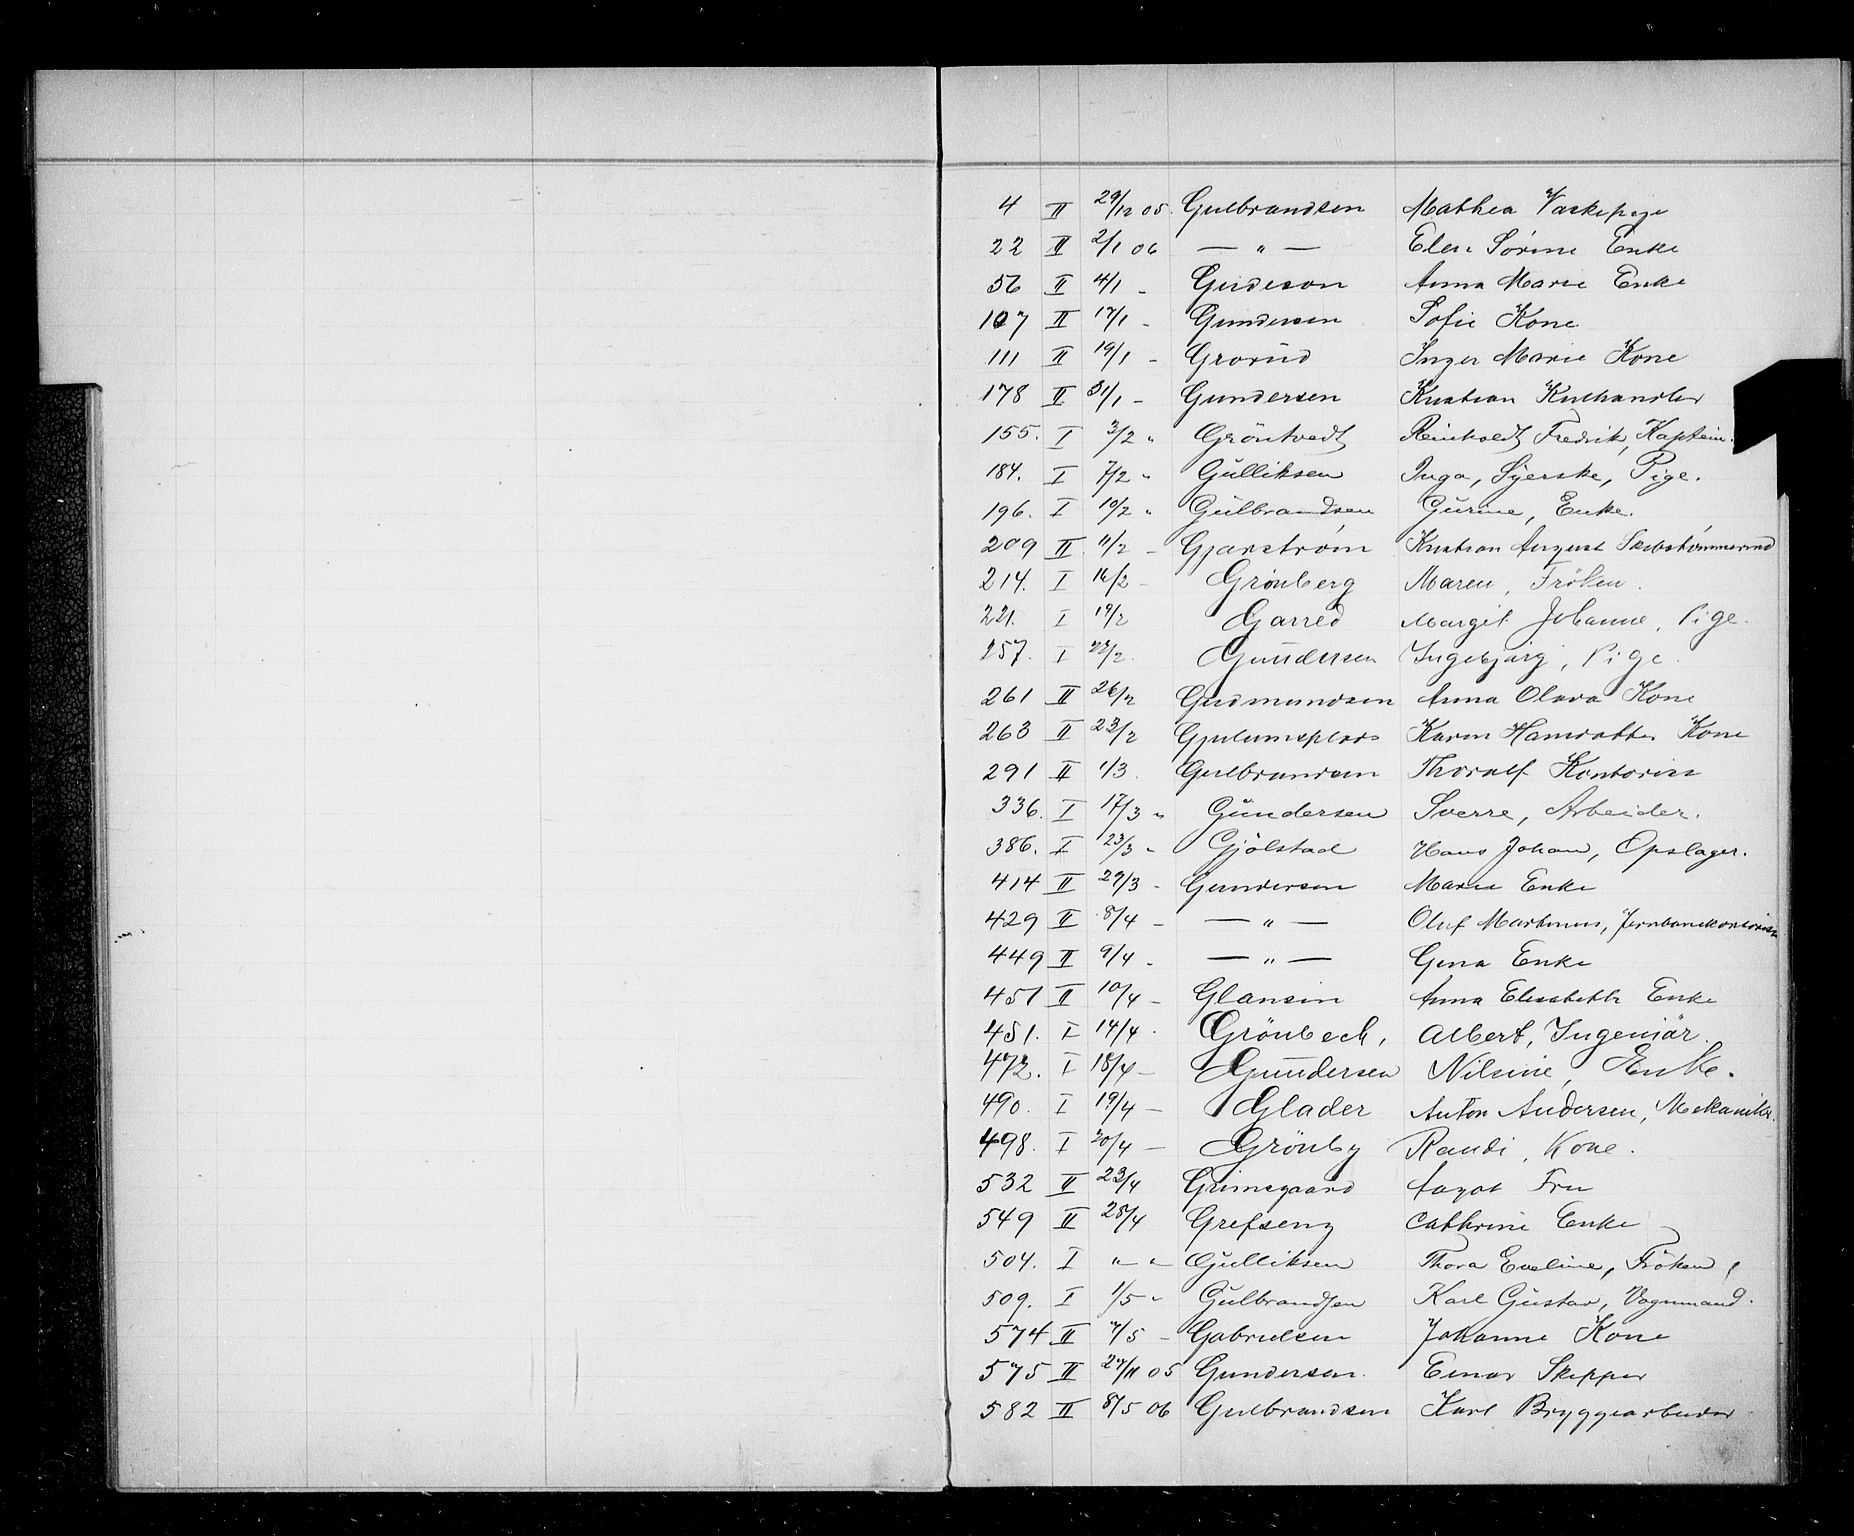 4 II 29/12 05. Gulbrandsen Mathea Vaskepige
22 II 2/1 06 — " — Elen Sørine Enke
56 II 4/1 - Gudeson Anna Marie Enke
107 II 17/1 - Gundersen Sofie Kone
111 II 19/1 - Grorud Inger Marie Kone
178 II 31/1 - Gundersen Kristian Kulhandler
155. I 3/2 " Gröntvedt Reinholdt Fredrik, Kaptein.
184. I 7/2 " Gulliksen Inga, Syerske, Pige.
196. I 10/2 " Gulbrandsen Gurine, Enke.
209 II 11/2 - Gjarstrøm Kristian August Skibstømmermd
214. I 16/2 - Grönberg Maren, Fröken.
221. I 19/2 Garred Margit Johanne, Pige.
257. I 22/2. Gundersen Ingebjørg, Pige.
261 II 26/2 Gudmundsen Anna Olava Kone
263 II 23/2 Gjulumsplads Karen Hansdatter Kone
291 II 1/3. Gulbrandsen Thoralf Kontorist
336. I 17/3 " Gundersen Sverre, Arbeider.
386. I 23/3 " Gjölstad Hans Johan, Opslager.
414 II 29/3 - Gundersen Marie Enke
429 II 8/4 - — " — Oluf Martinus, Jernbanekontorist
449 II 9/4 - — " — Gina Enke
451 II 10/4 - Glansen Anna Elisabeth Enke
451. I 14/4 - Grönbeck, Albert, Ingeniör.
472. I 18/4 - Gundersen Nilsine, Enke.
490. I 19/4 - Glader Anton Andersen, Mekaniker.
498. I 20/4 - Grönby Randi, Kone.
532 II 23/4 Grimsgaard Aagot Fru
549 II 28/4 Grefseng Cathrine Enke
504. I " - " Gulliksen Thora Eveline, Fröken,
509. I 1/5 " Gulbrandsen Karl Gustav, Vognmand.
574 II 7/5 - Gabrielsen Johanne Kone
575 II 27/11 05 Gundersen. Einar Skipper
582 II 8/5 06 Gulbrandsen Karl Bryggearbeider